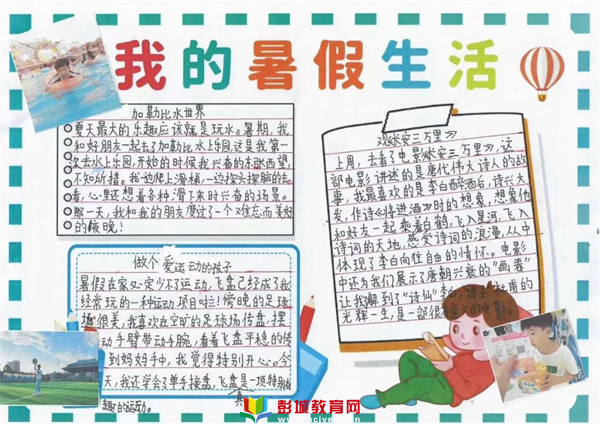 我的暑假生活
加勒比水世界
夏天最大的乐趣应该就是玩水。暑期,我
和好朋友一起去了加勒比水上乐园,这是我第一
次去水上乐园,开始的时候我兴奋的东瞅西望,
不知所措。我一边爬上滑梯,一边探头探脑的去
看,心里还想着各种滑下来时兴奋的场景。
那一天,我和我的朋友度过了一个难忘而美好
的夜晚!
做个爱运动的孩子
暑假在家必定少不了运动,飞盘已经成了我
经常玩的一种运动项目啦!傍晚的足球
场很美,我喜欢在空旷的足球场传盘,摆
动手臂带动手腕,看着飞盘平稳的传
到妈妈手中,我觉得特别开心。今
天,我还学会了单手接盘,飞盘真是一项特别有
趣的运动。
观《长安三万里》
上周,去看了电影《长安三万里》,这
部电影讲述的是唐代伟大诗人的故
事,我最喜欢的是李白醉酒后,诗兴大
发,作诗《将进酒》时的想象,想象他
和好友一起乘着白鹤,飞入星河,飞入
诗词的天地,感受诗词的浪漫,从中
体现了李白向往自由的情怀。电影
中还为我们展示了唐朝兴衰的“画卷”
让我解到了“诗仙”李白,
光辉一生,是一部很有意义的电影。
彭城教育网